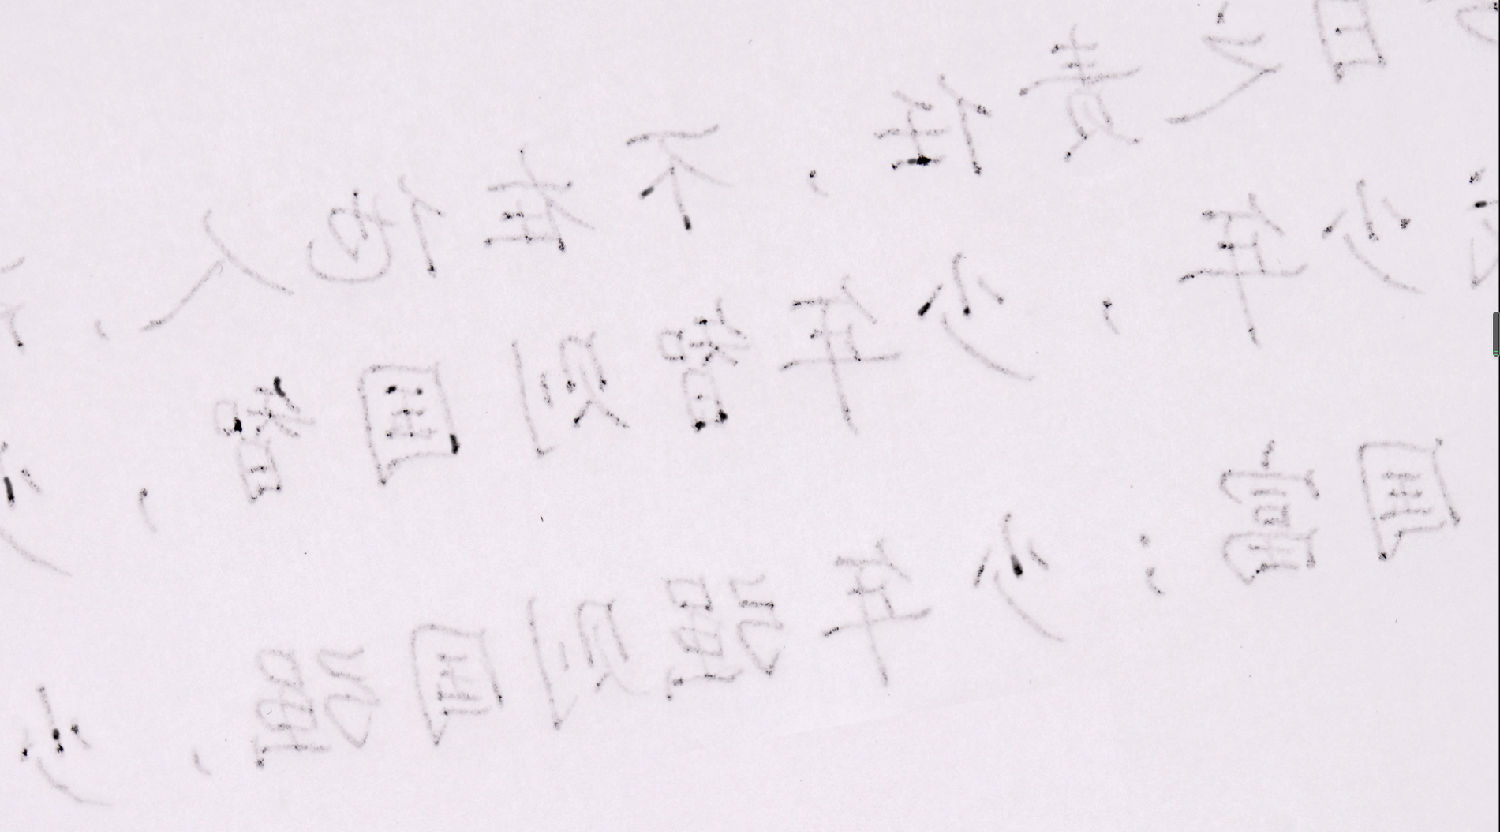 日之责任，不在他人，
少年，少年智则国智，少
国富；少年强则国强，少